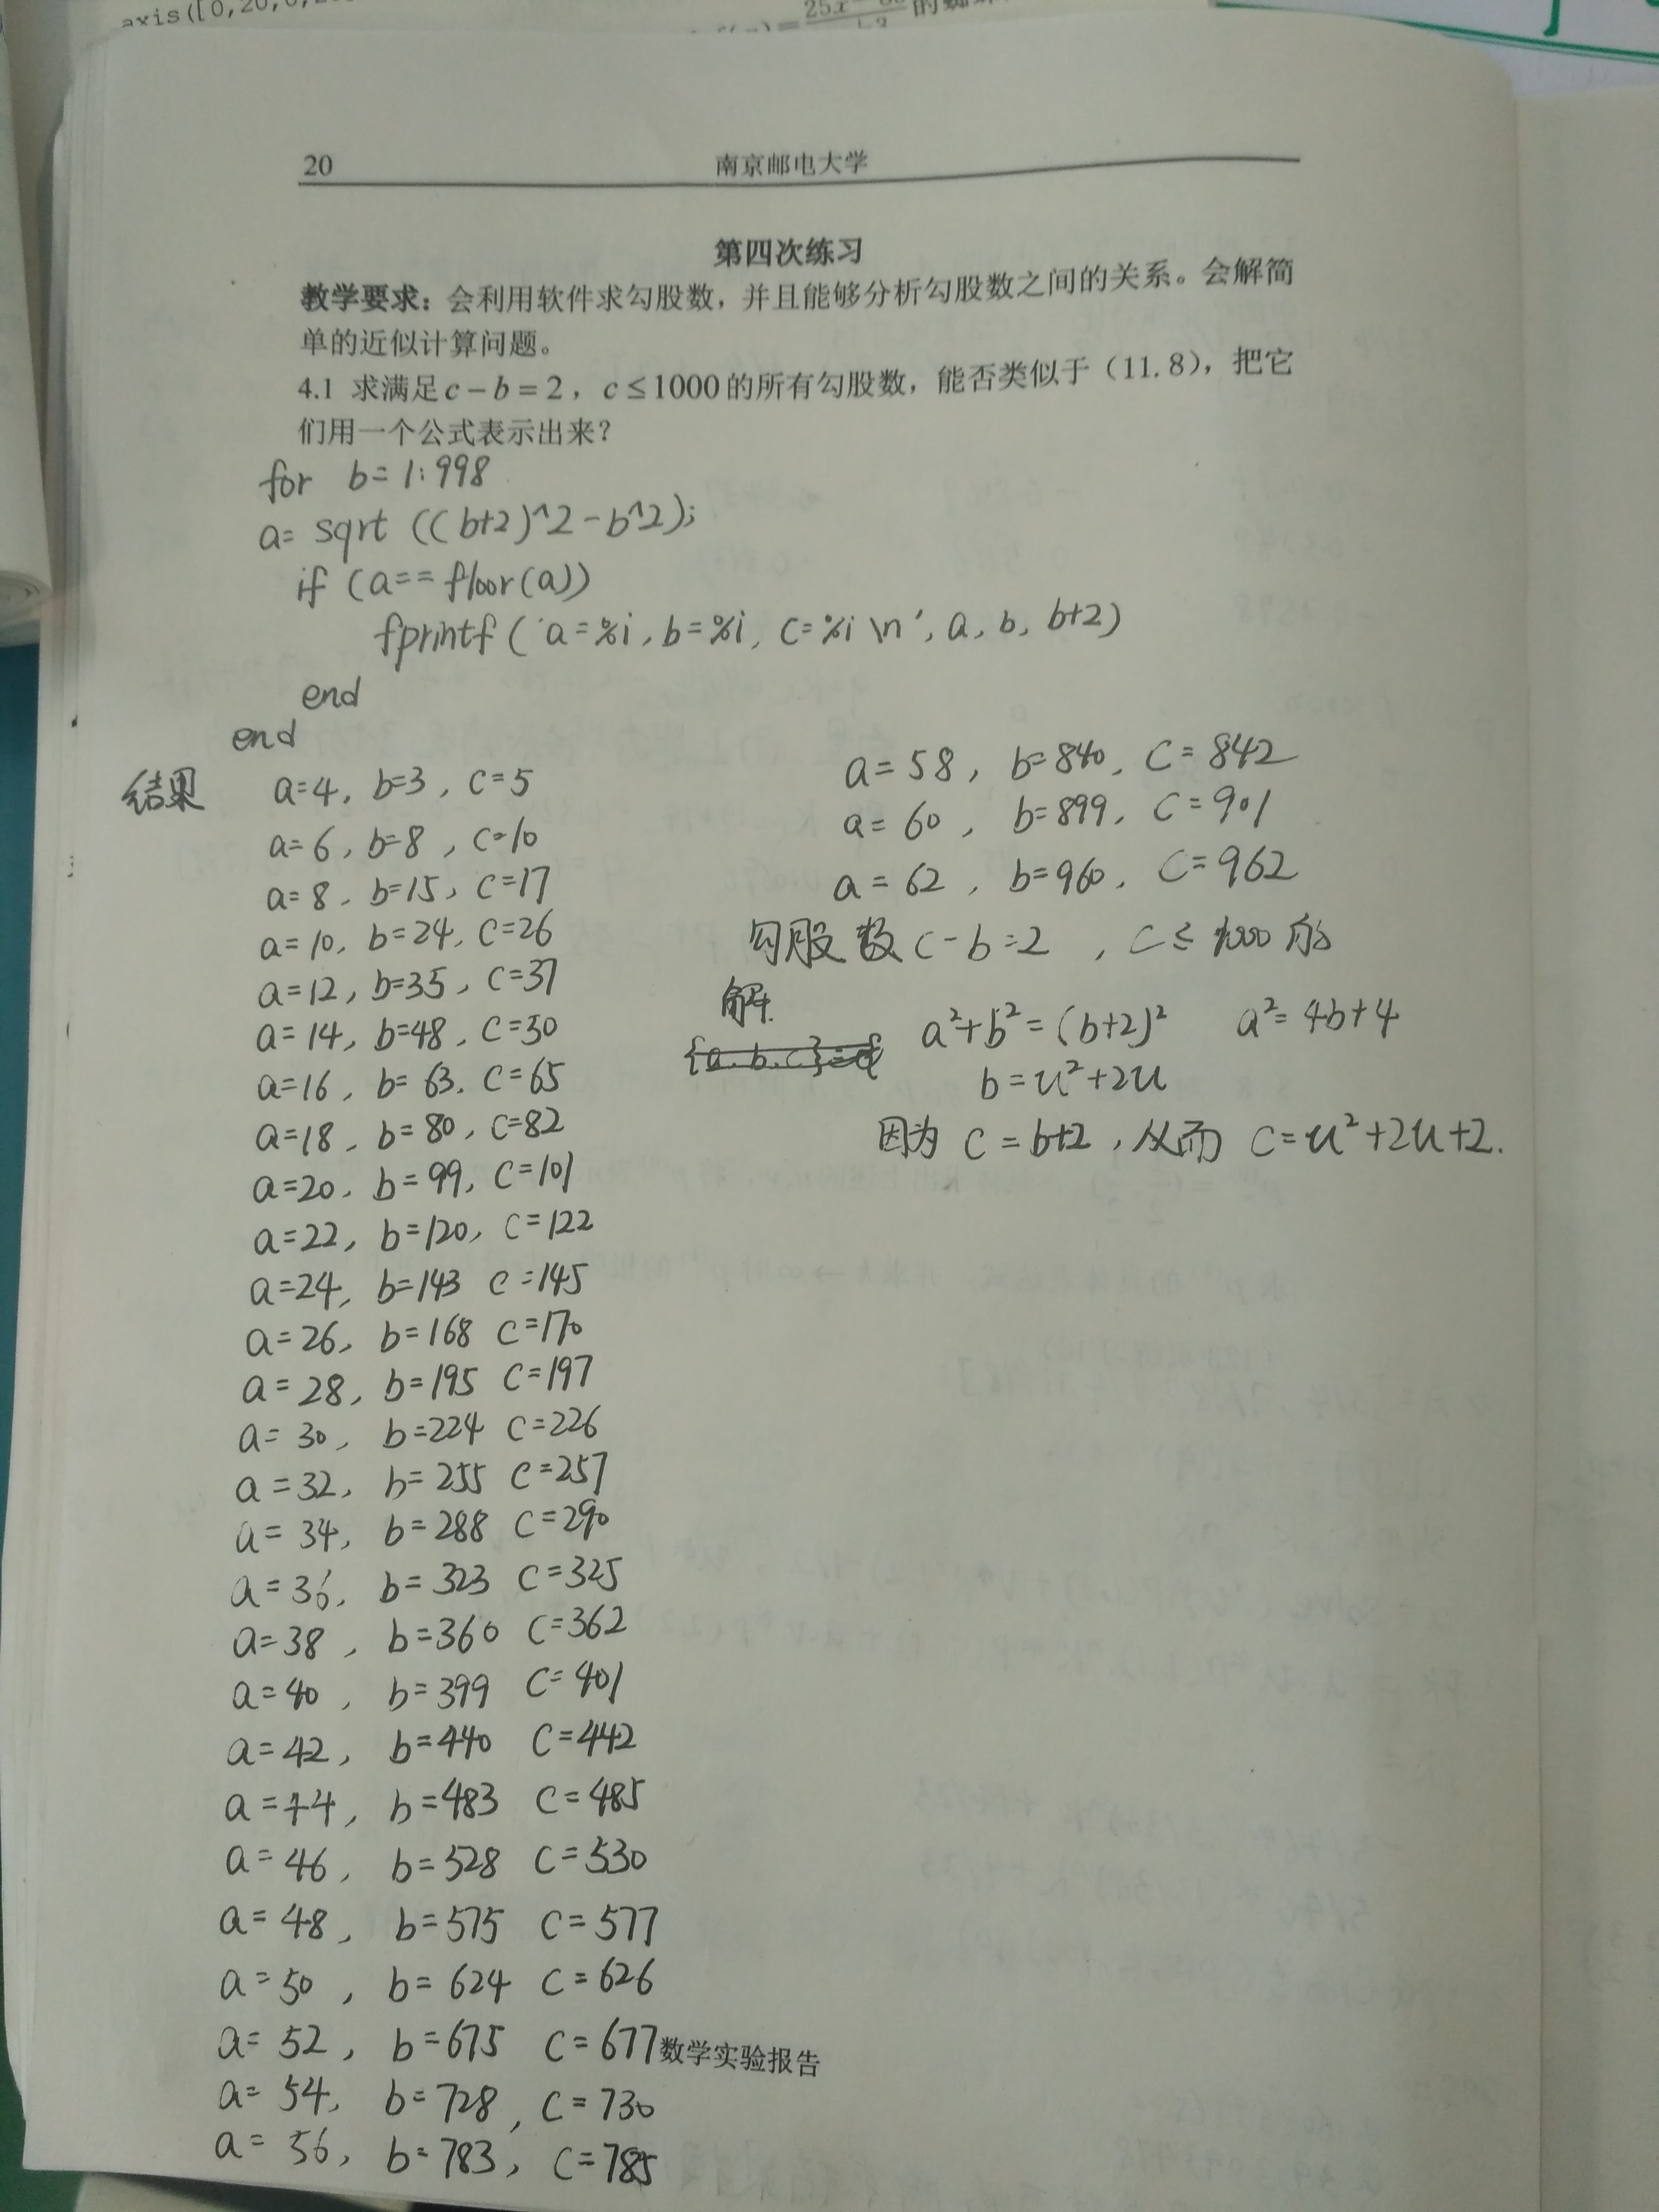 axis([0,20,0,
25x
的
20
南京邮电大学
第四次练习
教学要求：会利用软件求勾股数，并且能够分析勾股数之间的关系。会解简
单的近似计算问题。
4.1 求满足c－b＝2，c≤1000的所有勾股数，能否类似于（11.8），把它
们用一个公式表示出来？
for b=1:998
a= sqrt ((b+2)^2-b^2);
if (a==floor(a))
fprintf('a=%i, b=%i, c=%i \n', a, b, b+2)
end
end
结果
a=4, b=3, c=5
a=6, b=8, c=10
a=8, b=15, c=17
a=10, b=24, c=26
a=12, b=35, c=37
a=14, b=48, c=50
a=16, b=63, c=65
a=18, b=80, c=82
a=20, b=99, c=101
a=22, b=120, c=122
a=24, b=143 c=145
a=26, b=168 c=170
a=28, b=195 c=197
a=30, b=224 c=226
a=32, b=255 c=257
a=34, b=288 c=290
a=36, b=323 c=325
a=38, b=360 c=362
a=40, b=399 c=401
a=42, b=440 c=442
a=44, b=483 c=485
a=46, b=528 c=530
a=48, b=575 c=577
a=50, b=624 c=626
a=52, b=675 c=677
a=54, b=728, c=730
a=56, b=783, c=785
a=58, b=840, c=842
a=60, b=899, c=901
a=62, b=960, c=962
勾股数 c-b=2, c≤1000 的
解.
{a.b.c}=
a²+b²=(b+2)² a²=4b+4
b=u²+2u
因为 c=b+2, 从而 c=u²+2u+2.
数学实验报告